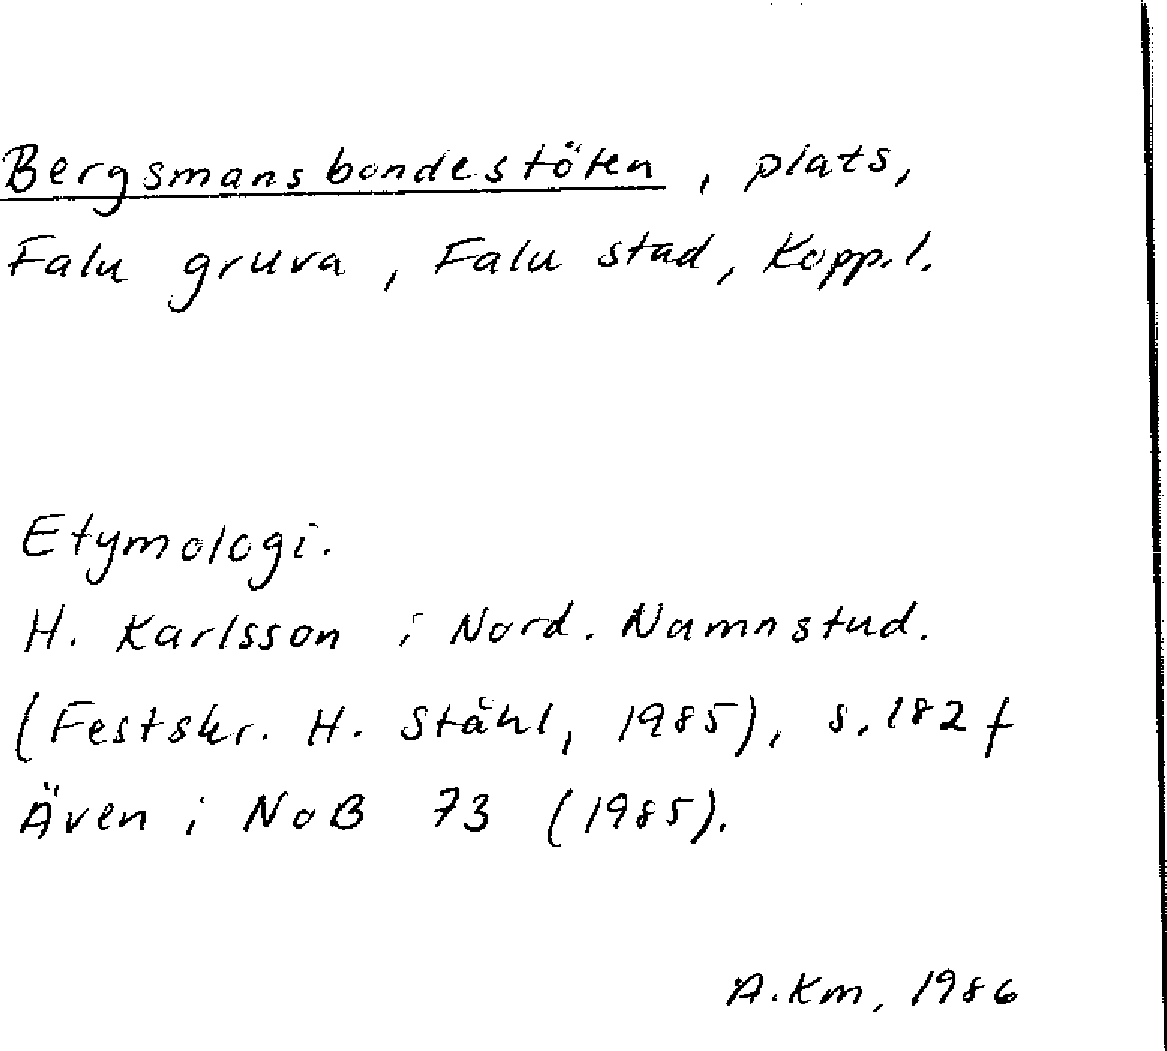 Bergsmansbondestöten, plats,
Falu gruva, Falu stad, Kopp.l.
Etymologi.
H. Karlsson i Nord. Namnstud.
(Festskr. H. Ståhl, 1985), s. 182 f
Även i NoB 73 (1985).
A.Km, 1986